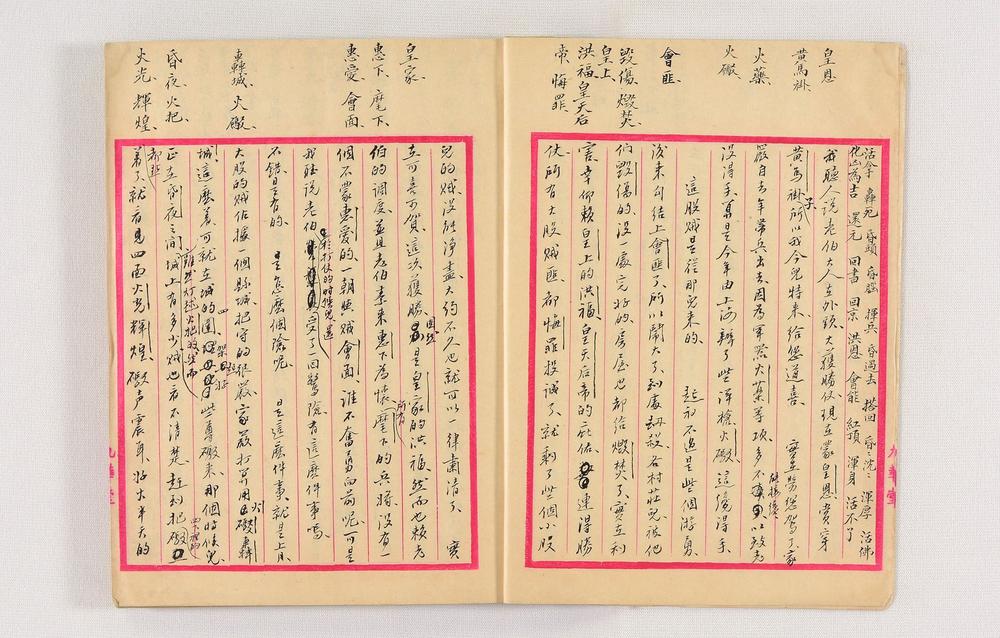 皇恩、
黃馬褂、
火藥、
火礮、
會匪、
毀傷、燬焚、
皇上、
洪福、皇天后
帝、悔罪、
活拿 轟死 昏頭 昏腦 揮兵 昏過去 搭回 昏〻沈〻 渾厚 活佛
化凶為吉 還元 回書 回京 洪恩 會能 紅頂 渾身 活不了
我聽人說老伯大人在外頭大獲勝仗現在蒙皇恩賞穿
黃馬褂子所以我今兒特來給您道喜 實在勞您駕了家
嚴自去年帶兵出去因為軍器火藥等項多不能接續以致老
沒得手直是今年由上海辦了些洋槍火礮這纔得手
這股賊是從那兒來的 起初不過是些個游勇
後來勾結上會匪了所以鬧大了到處劫殺各村莊兒被他
伯毀傷的沒一處完好的房屋也都給燬焚了實在利
害幸仰賴皇上的洪福皇天后帝的庇佑連得勝
仗所有大股賊匪都悔罪投誠了就剩了些個小股
九華堂
皇家、
惠下、麾下、
惠愛、會面、
轟城、火礮、
昏夜、火把、
火光、輝煌、
兒的賊沒能淨盡大約不久也就可以一律肅清了 實
在可喜可賀這次獲勝固然是皇家的洪福然而也賴老
伯的調度並且老伯素來惠下為懷麾下的兵將沒有一
個不蒙惠愛的一朝與賊會面誰不奮勇向前呢可是
我聽說老伯在打仗的時候兒還受了一回驚險有這麼件事嗎
不錯是有的 是怎麼個險呢 是這麼件事就是上月
大股的賊佔據一個縣城把守的很嚴家嚴打算用火礮轟
城這麼著可就在城的四圍架好些尊礮來那個時候兒
正在昏夜之間雖然燈球火把城上有多少賊也看不清楚趕到把礮
都點著了就看見四面火光輝煌礮声震耳好大半天的